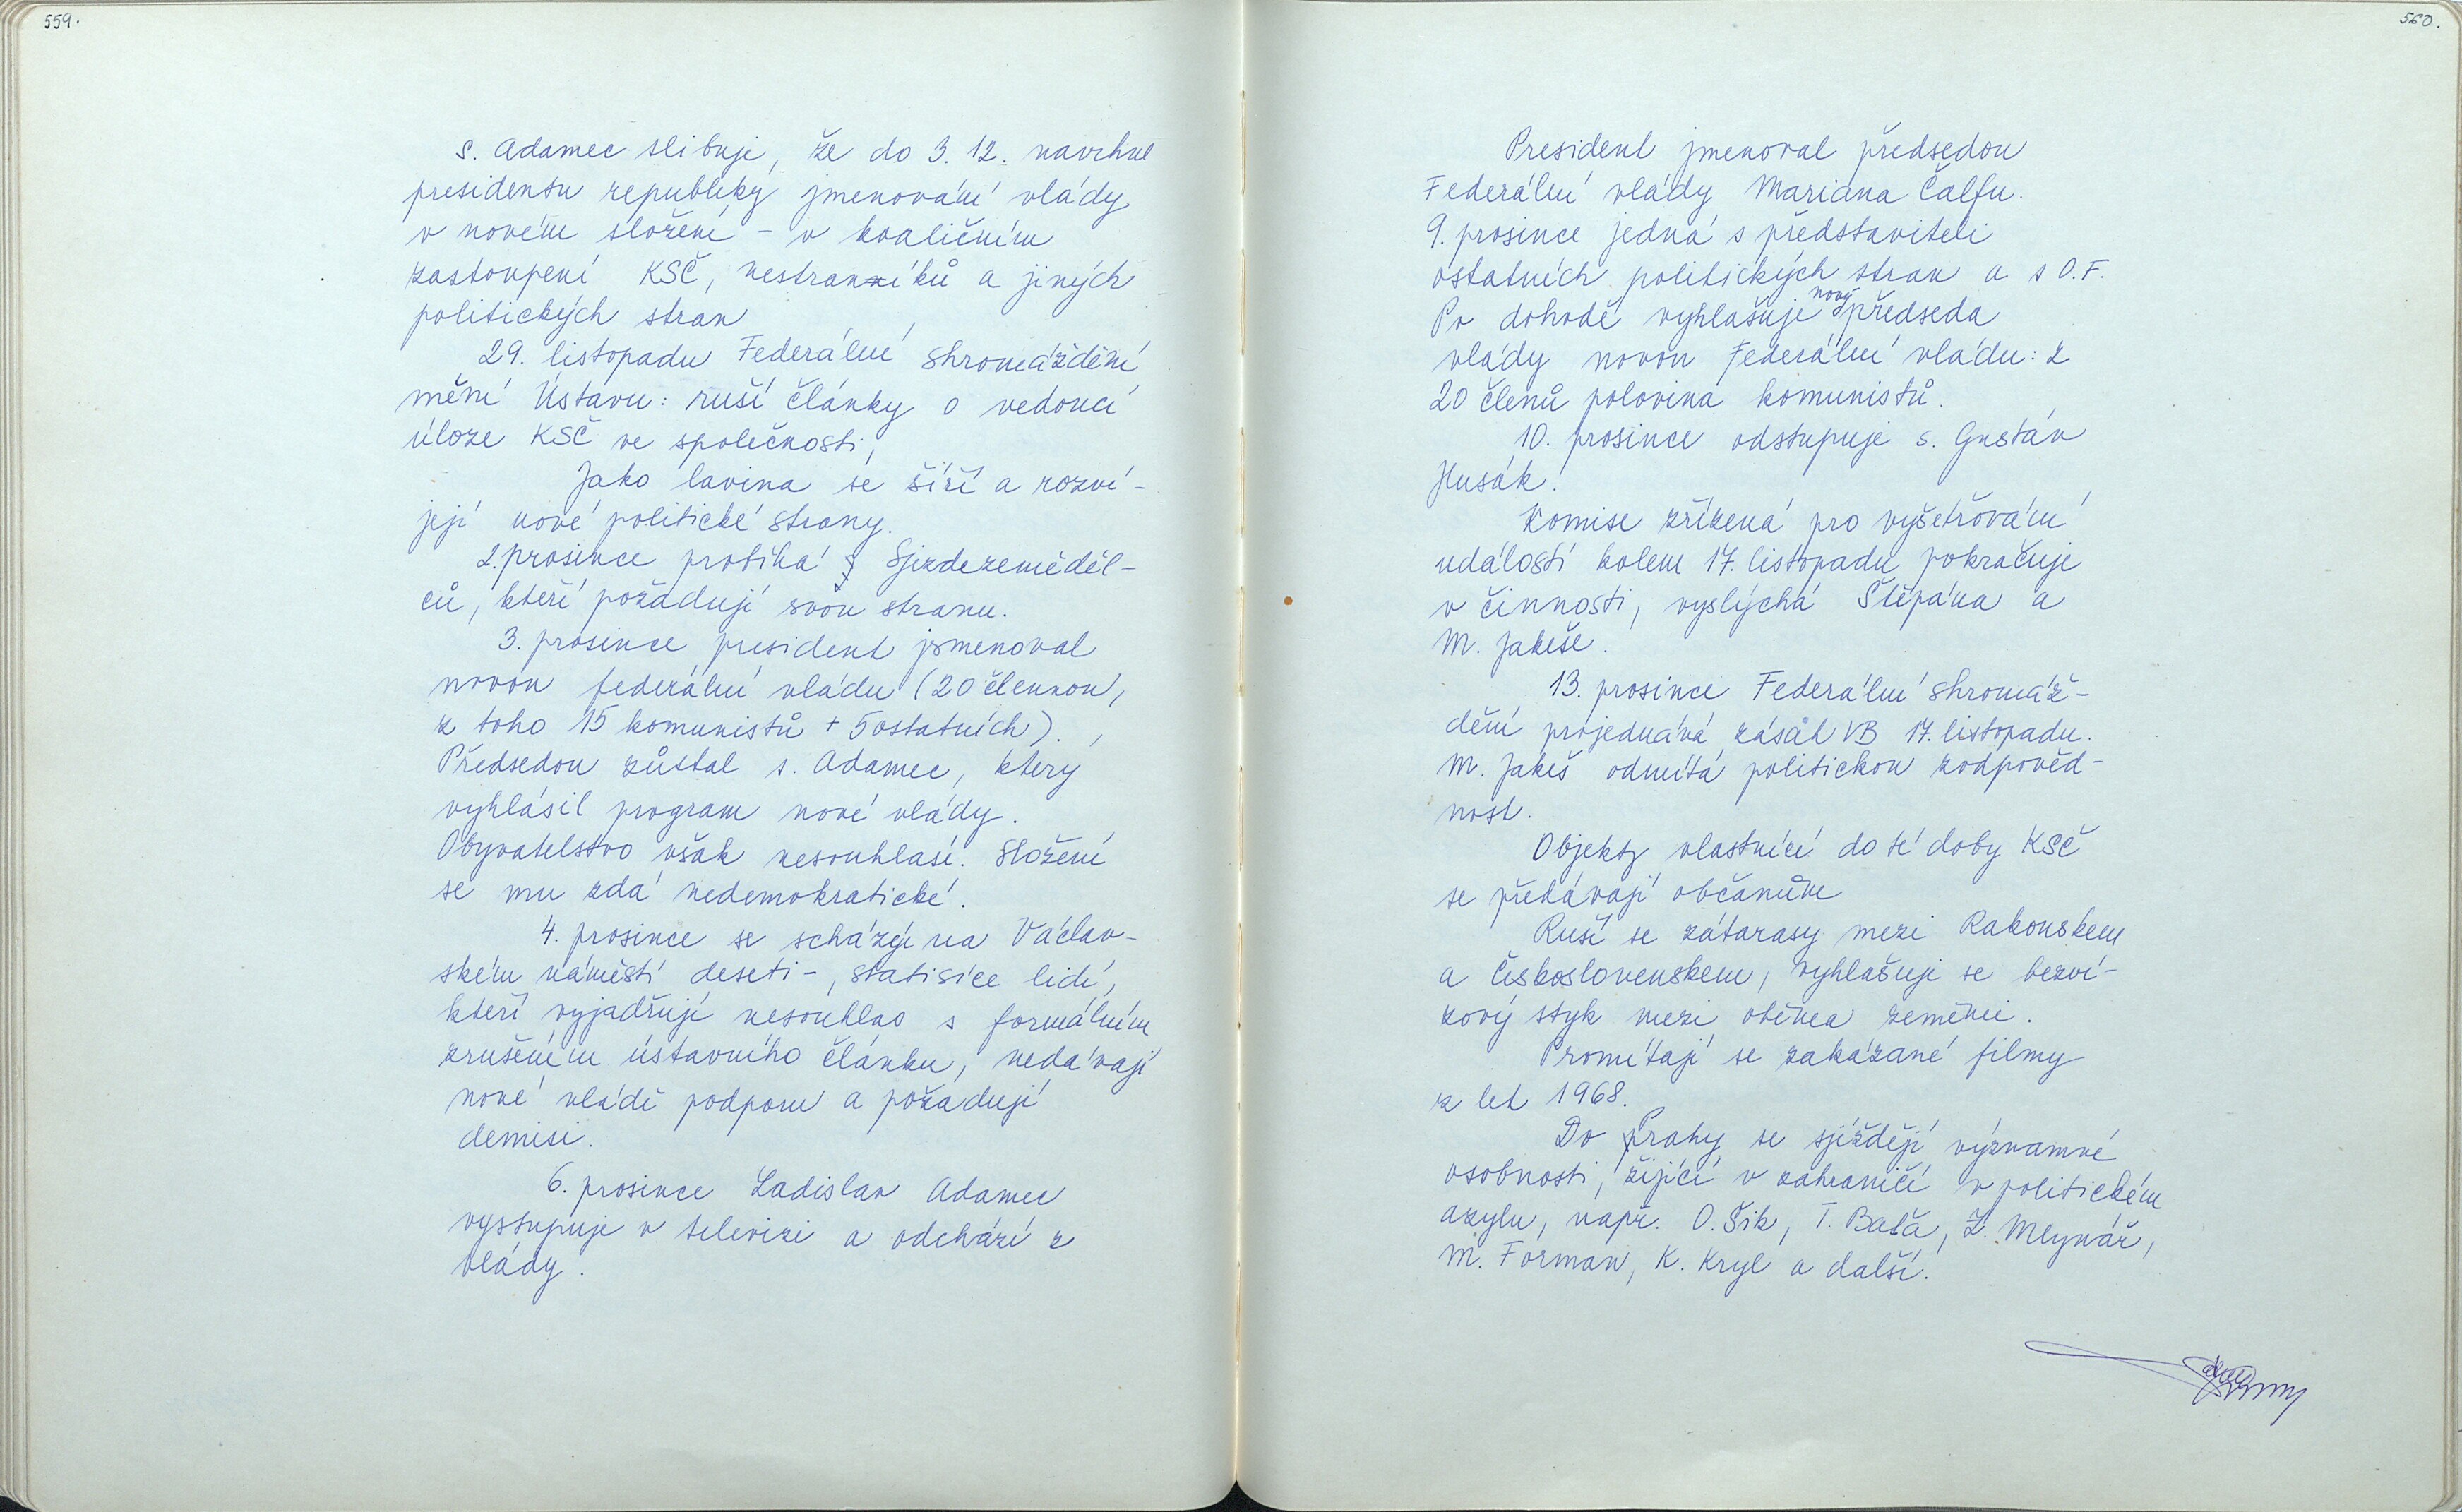 559.
s. Adamec slibuje, že do 3. 12. navrhne
presidentu republiky jmenování vlády
v novém složení - v koaličním
zastoupení KSČ, nestraníků a jiných
politických stran
29. listopadu Federální shromáždění
mění Ústavu: ruší články o vedoucí
úloze KSČ ve společnosti,
Jako lavina se šíří a rozví-
její nové politické strany.
2. prosince probíhá Sjezd zeměděl-
ců, kteří požadují svou stranu.
3. prosince president jmenoval
novou federální vládu (20 člennou,
z toho 15 komunistů + 5 ostatních).
Předsedou zůstal s. Adamec, který
vyhlásil program nové vlády.
Obyvatelstvo však nesouhlasí. Složení
se mu zdá nedemokratické.
4. prosince se scházejí na Václav-
ském náměstí deseti-, statisíce lidí,
kteří vyjadřují nesouhlas s formálním
zrušením ústavního článku, nedávají
nové vládě podporu a požadují
demisi.
6. prosince Ladislav Adamec
vystupuje v televizi a odchází z
vlády.
560.
President jmenoval předsedou
Federální vlády Mariana Čalfu.
9. prosince jedná s představiteli
ostatních politických stran a s O.F.
Po dohodě vyhlašuje nový předseda
vlády novou Federální vládu: z
20 členů polovina komunistů.
10. prosince odstupuje s. Gustáv
Husák.
Komise zřízená pro vyšetřování
událostí kolem 17. listopadu pokračuje
v činnosti, vyslýchá Štěpána a
M. Jakeše.
13. prosince Federální shromáž-
dění projednává zásah VB 17. listopadu.
M. Jakeš odmítá politickou zodpověd-
nost.
Objekty vlastnící do té doby KSČ
se předávají občanům
Ruší se zátarasy mezi Rakouskem
a Československem, vyhlašuje se bezví-
zový styk mezi oběma zeměmi.
Promítají se zakázané filmy
z let 1968.
Do Prahy se sjíždějí významné
osobnosti, žijící v zahraničí v politickém
azylu, např. O. Šik, T. Baťa, Z. Mlynář,
M. Forman, K. Kryl a další.